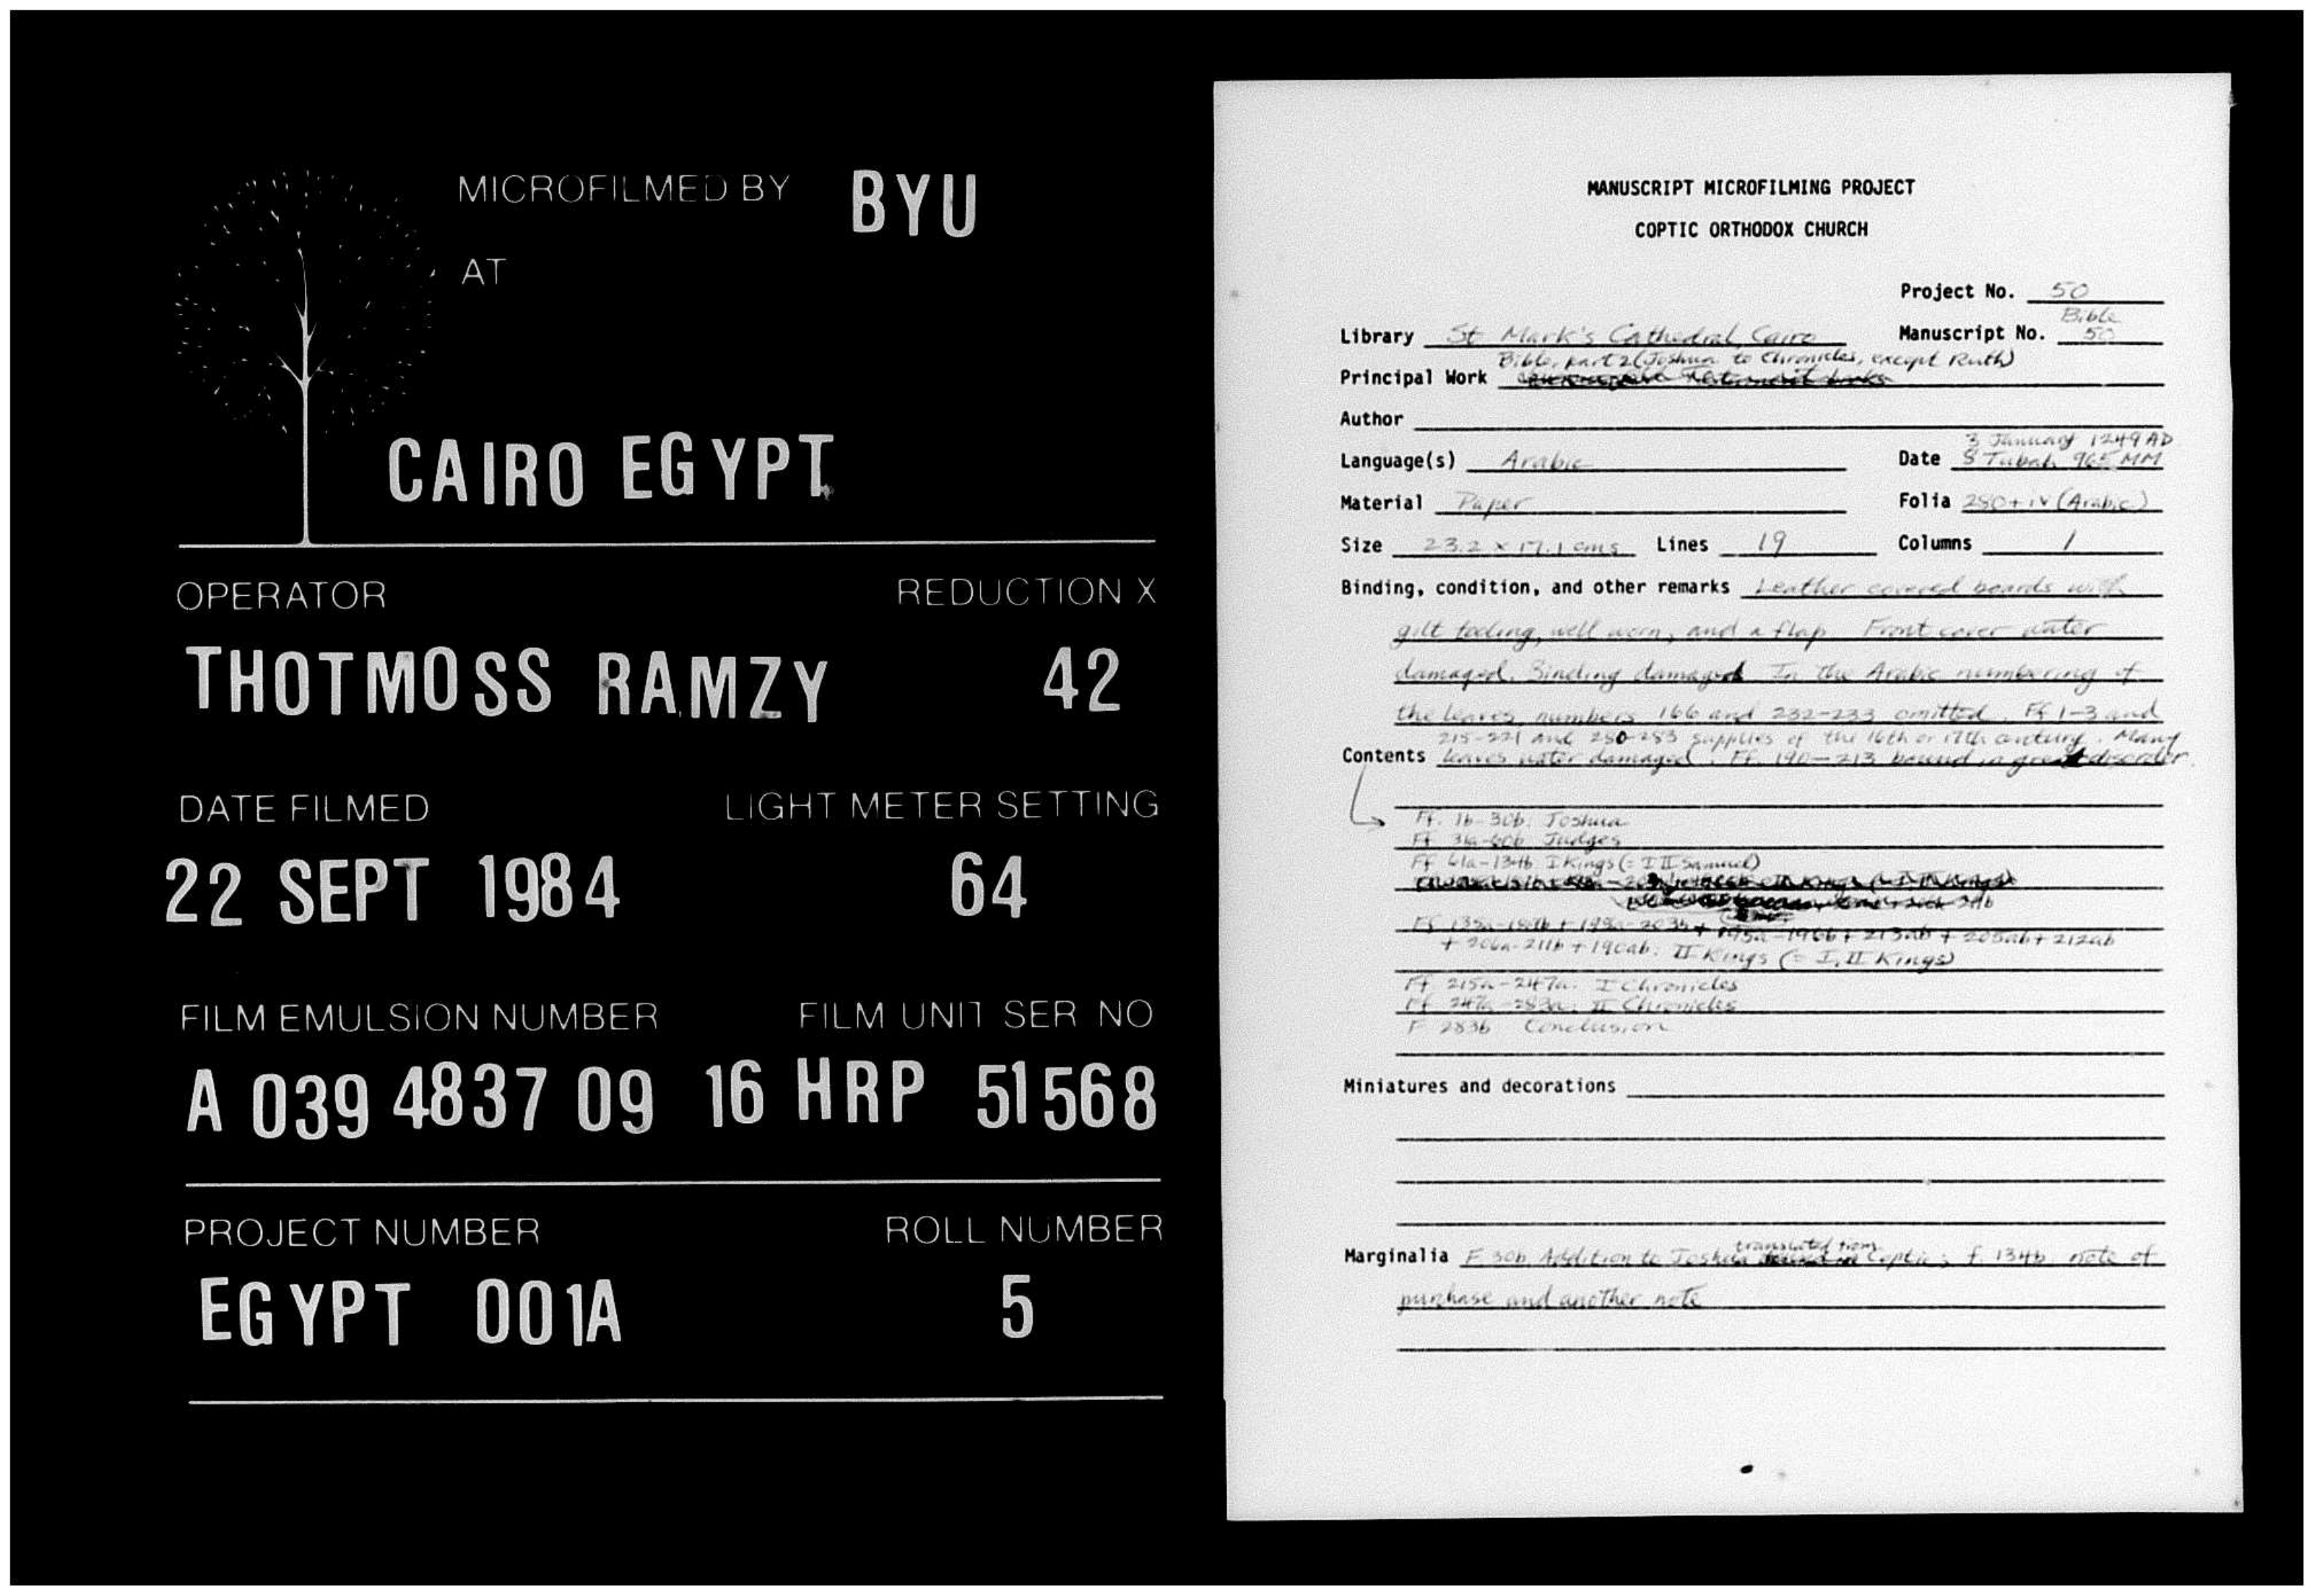 MICROFILMED BY BYU
AT
CAIRO EGYPT
OPERATOR REDUCTION X
THOTMOSS RAMZY 42
DATE FILMED LIGHT METER SETTING
22 SEPT 1984 64
FILM EMULSION NUMBER FILM UNIT SER NO
A 039 4837 09 16 HRP 51568
PROJECT NUMBER ROLL NUMBER
EGYPT 001A 5
MANUSCRIPT MICROFILMING PROJECT
COPTIC ORTHODOX CHURCH
Project No. 50
Bible
Library St Mark's Cathedral, Cairo Manuscript No. 50
Bible, part 2 (Joshua to Chronicles, except Ruth)
Principal Work
Author
3 January 1249 AD
Language(s) Arabic Date 8 Tubah 965 MM
Material Paper Folia 280+iv (Arabic)
Size 23.2 x 17.1 cms Lines 19 Columns 1
Binding, condition, and other remarks Leather covered boards with
gilt tooling, well worn, and a flap. Front cover water
damaged. Binding damaged. In the Arabic numbering of
the leaves, numbers 166 and 232-233 omitted. Ff 1-3 and
215-221 and 280-283 supplies of the 16th or 17th century. Many
Contents leaves water damaged. Ff. 190-213 bound in great disorder.
Ff. 1b-30b: Joshua
Ff 31a-60b Judges
Ff 61a-134b I Kings (= I II Samuel)
Ff 135a-189b + 198a-203b + 195a-196b + 213ab + 205ab + 212ab
+ 206a-211b + 190ab: II Kings (= I, II Kings)
Ff 215a-247a: I Chronicles
Ff 247a-283a: II Chronicles
F 283b Conclusion
Miniatures and decorations
translated from
Marginalia F 30b Addition to Joshua Coptic; f. 134b note of
purchase and another note